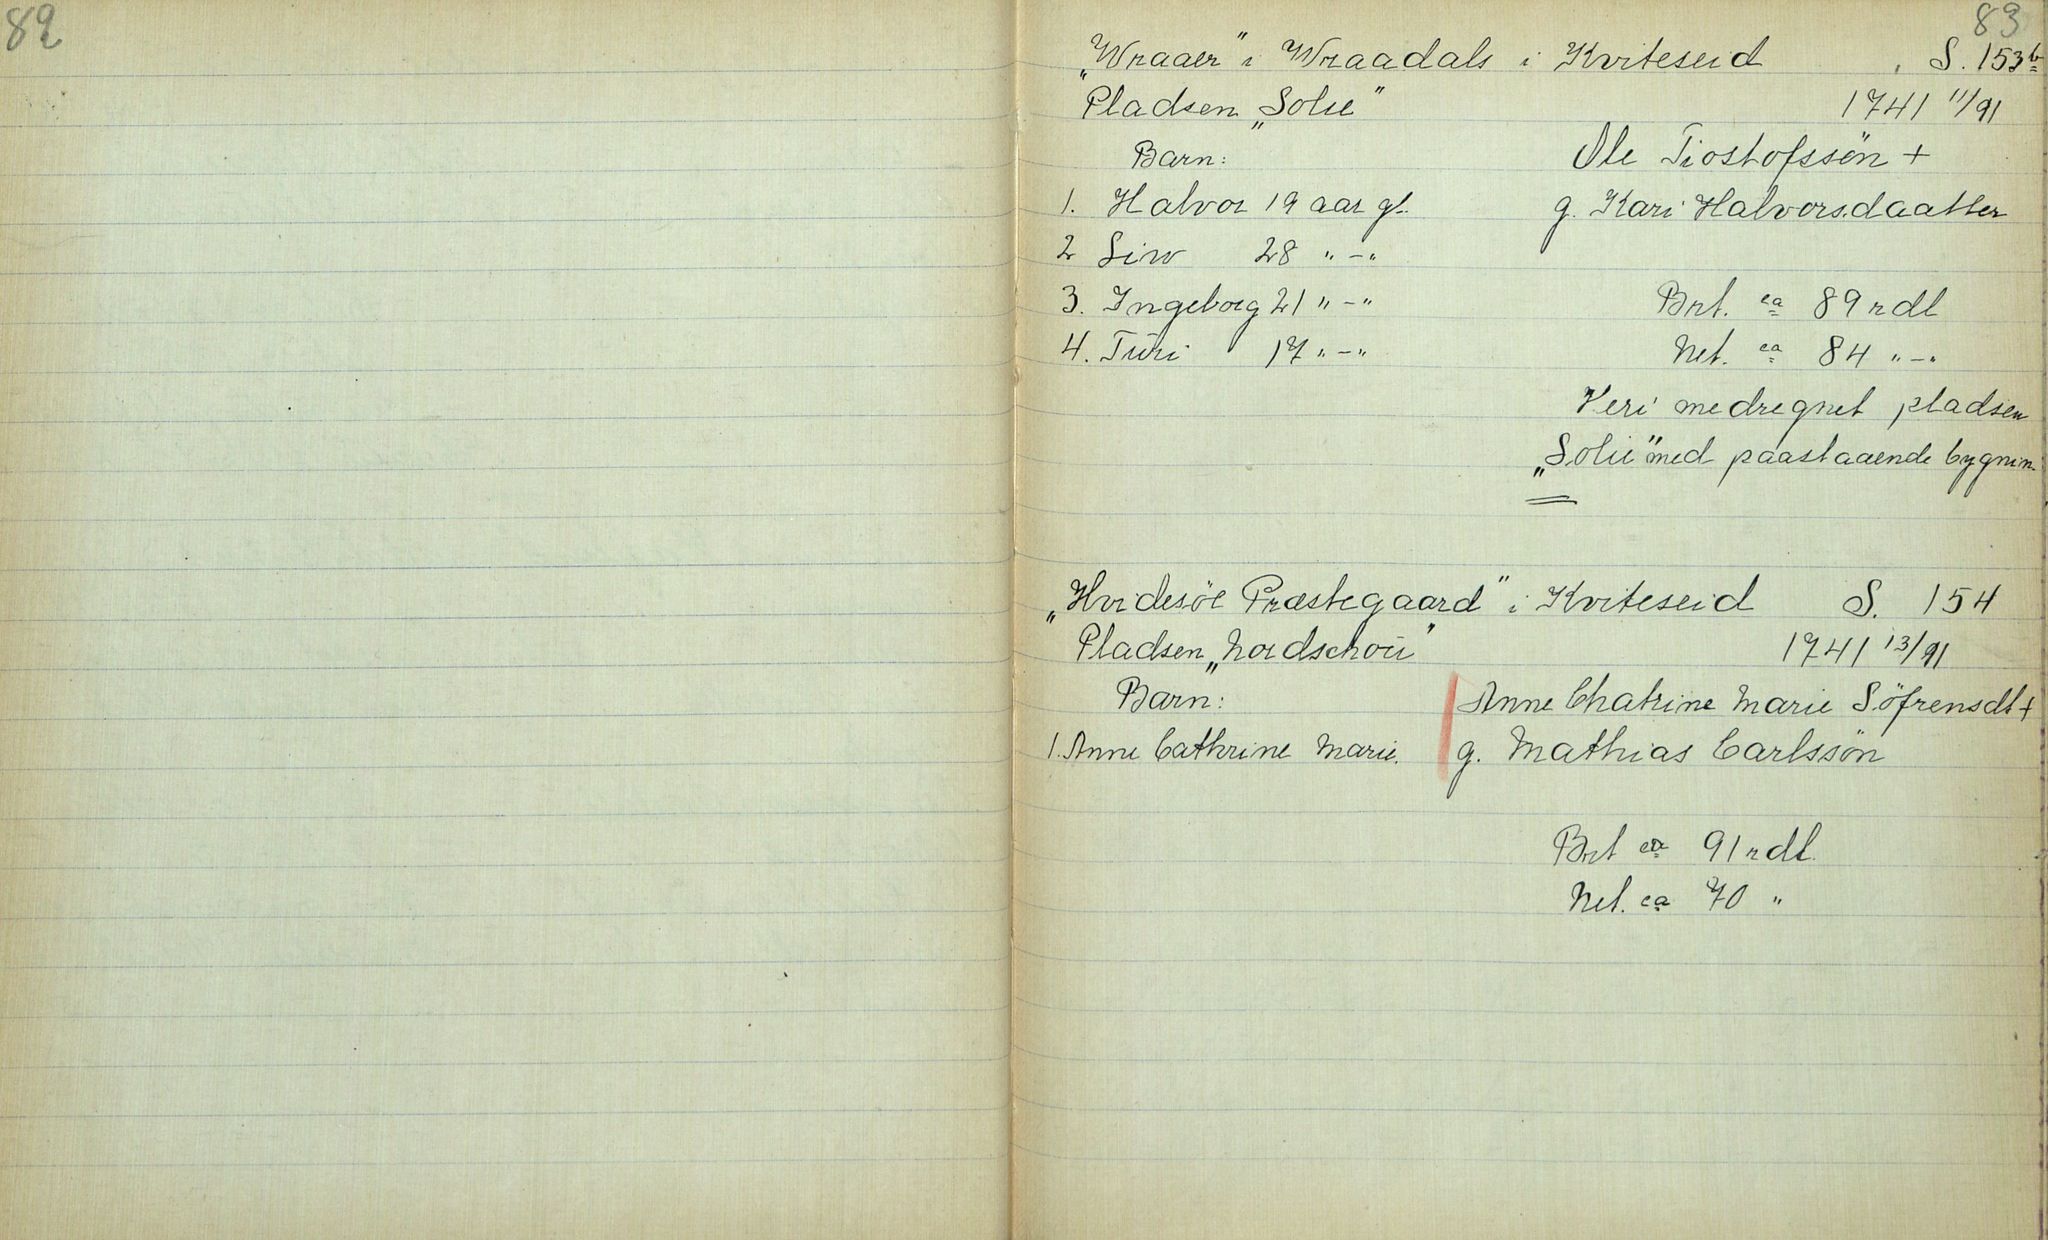 82
83
„Wraaer" i Wraadals i Kviteseid S. 153 b
Pladsen „Solie" 1741 11/91
Barn: Ole Tiostofssön +
1. Halvor 19 aar gl. g. Kari Halvorsdaatter
2 Siw 28 " - "
3. Ingeborg 21 " - " Brt. ca 89 rdl
4. Turi 17 " - " Net. ca 84 " - "
Heri medregnet pladsen
„Solie" med paastaaende bygnin.
„Hvidesöe Præstegaard" i Kviteseid S. 154
Pladsen „Nordschou" 1741 13/91
Barn: Anne Chatrine Marie Söfrensdt +
1. Anne Cathrine Marie. g. Mathias Carlssön
Brt ca 91 rdl.
Net. ca 70 "